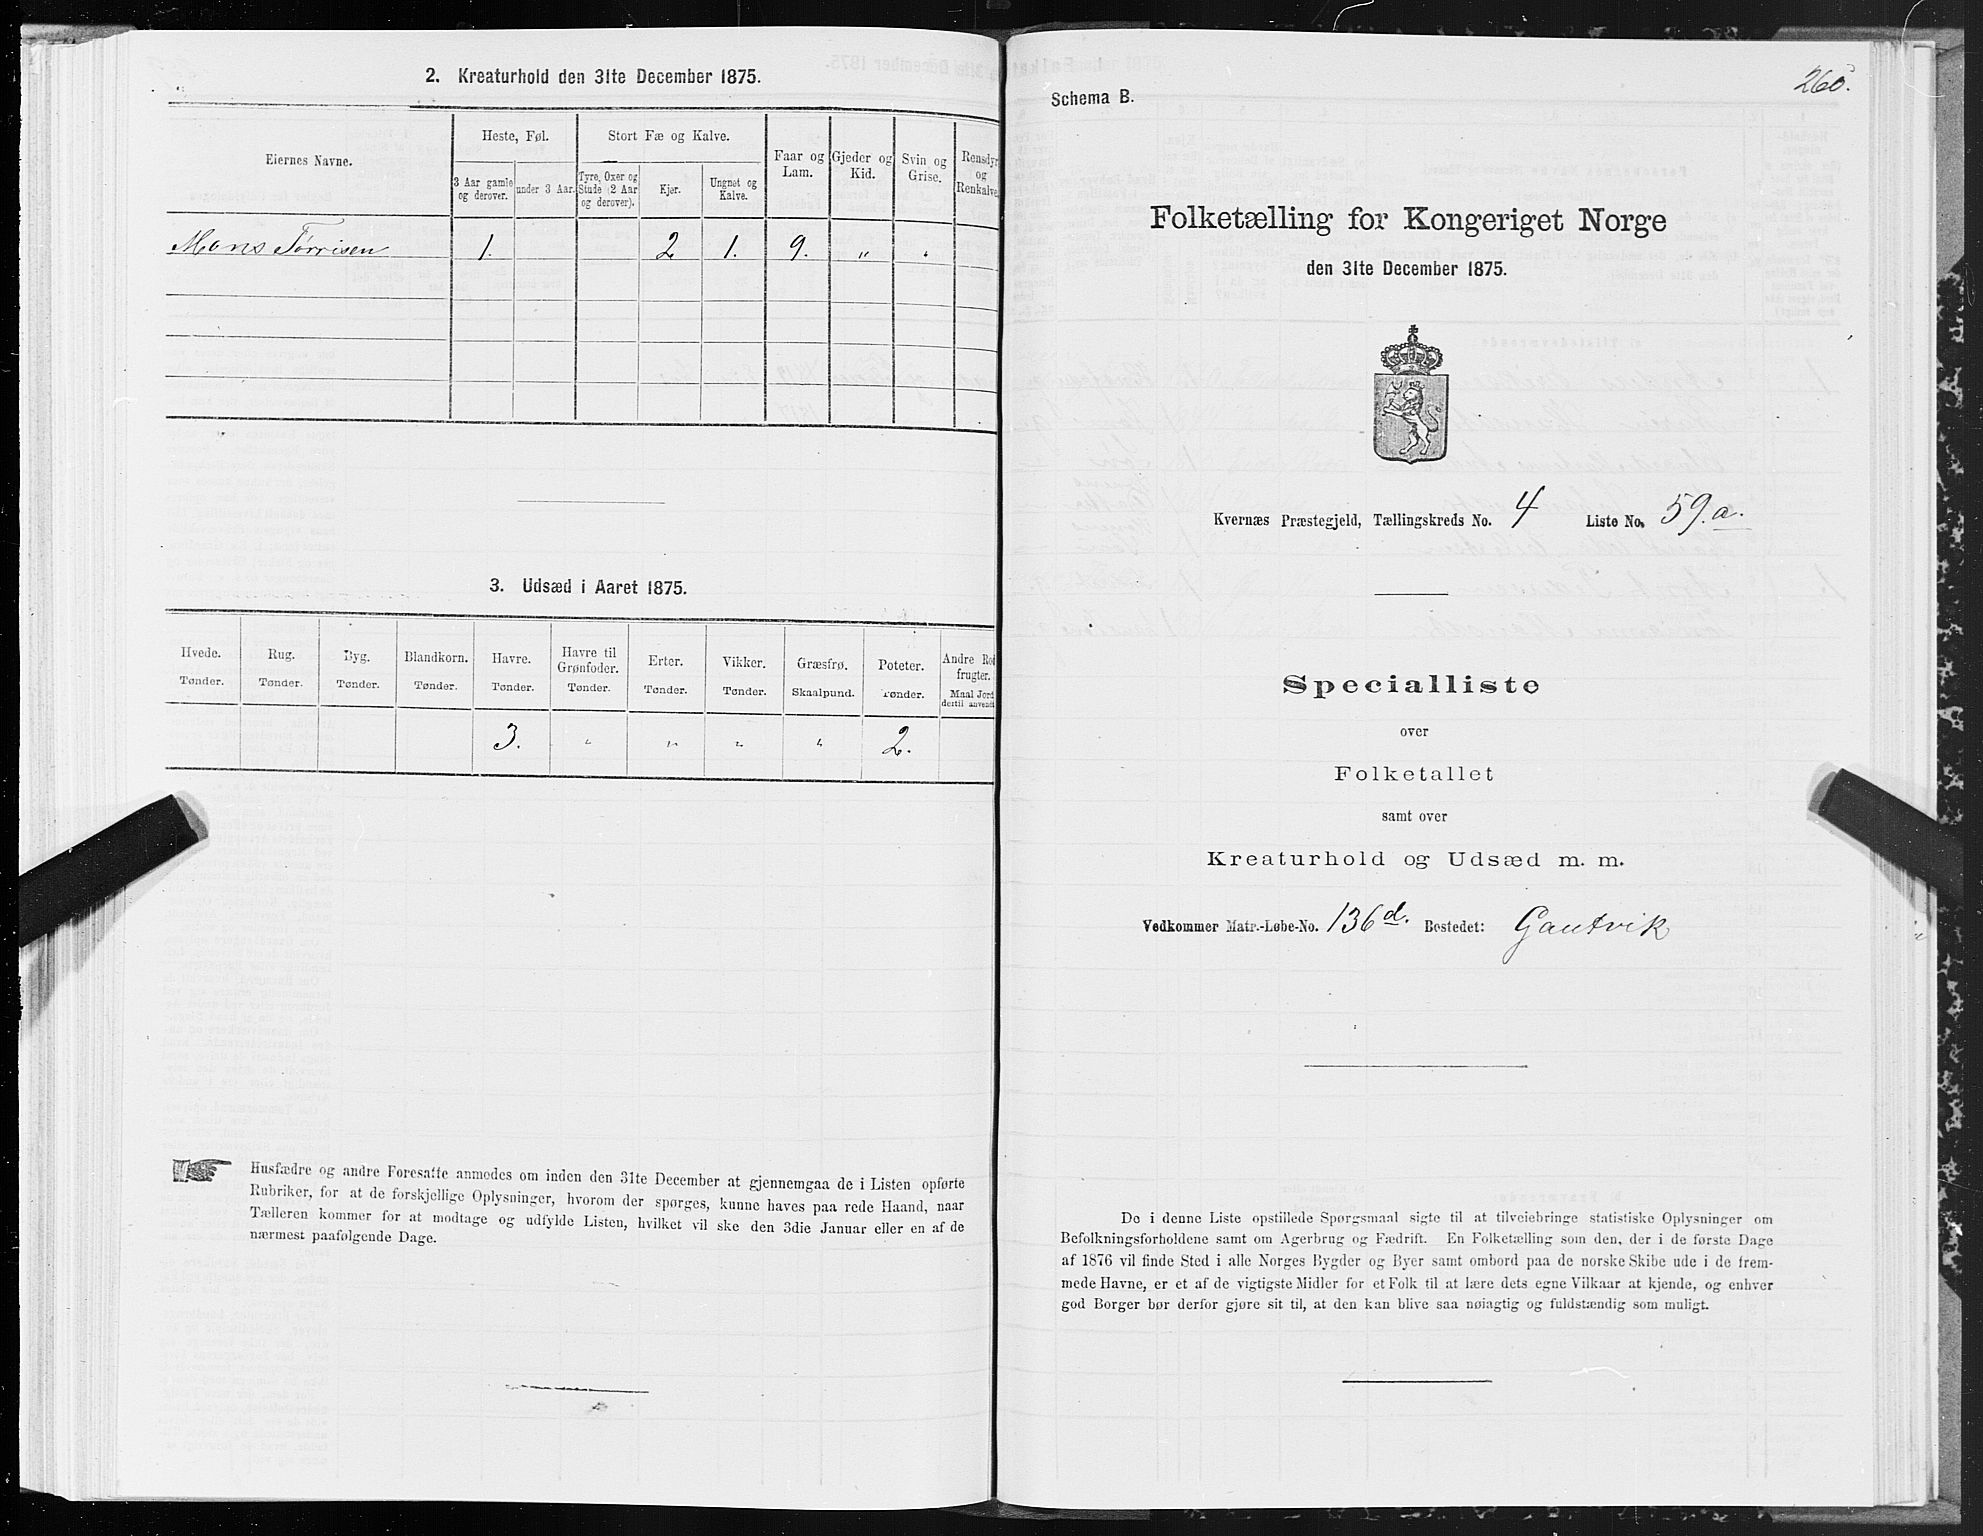 2. Kreaturhold den 31te December 1875.
Eiernes Navne.
Heste, Føl.
Stort Fæ og Kalve.
Faar og Lam.
Gjeder og Kid.
Svin og Grise.
Rensdyr og Renkalve.
3 Aar gamle og derover.
under 3 Aar.
Tyre, Oxer og Stude (2 Aar og derover).
Kjør.
Ungnøt og Kalve.
Mons Tørrisen 1. 2 1. 9. " "
3. Udsæd i Aaret 1875.
Hvede. Rug. Byg. Blandkorn. Havre. Havre til Grønfoder. Erter. Vikker. Græsfrø. Poteter. Andre Rod frugter.
Tønder. Tønder. Tønder. Tønder. Tønder. Tønder. Tønder. Tønder. Skaalpund. Tønder. Maal Jord dertil anvendt
3. " " " " 2.
Husfædre og andre Foresatte anmodes om inden den 31te December at gjennemgaa de i Listen opførte
Rubriker, for at de forskjellige Oplysninger, hvorom der spørges, kunne haves paa rede Haand, naar
Tælleren kommer for at modtage og udfylde Listen, hvilket vil ske den 3die Januar eller en af de
nærmest paafølgende Dage.
260.
Schema B.
Folketælling for Kongeriget Norge
den 31te December 1875.
Kvernæs Præstegjeld, Tællingskreds No. 4 Liste No. 59.a.
Specialliste
over
Folketallet
samt over
Kreaturhold og Udsæd m. m.
Vedkommer Matr.-Løbe-No. 136d. Bostedet: Gautvik
De i denne Liste opstillede Spørgsmaal sigte til at tilveiebringe statistiske Oplysninger om
Befolkningsforholdene samt om Agerbrug og Fædrift. En Folketælling som den, der i de første Dage
af 1876 vil finde Sted i alle Norges Bygder og Byer samt ombord paa de norske Skibe ude i de frem-
mede Havne, er et af de vigtigste Midler for et Folk til at lære dets egne Vilkaar at kjende, og enhver
god Borger bør derfor gjøre sit til, at den kan blive saa nøiagtig og fuldstændig som muligt.